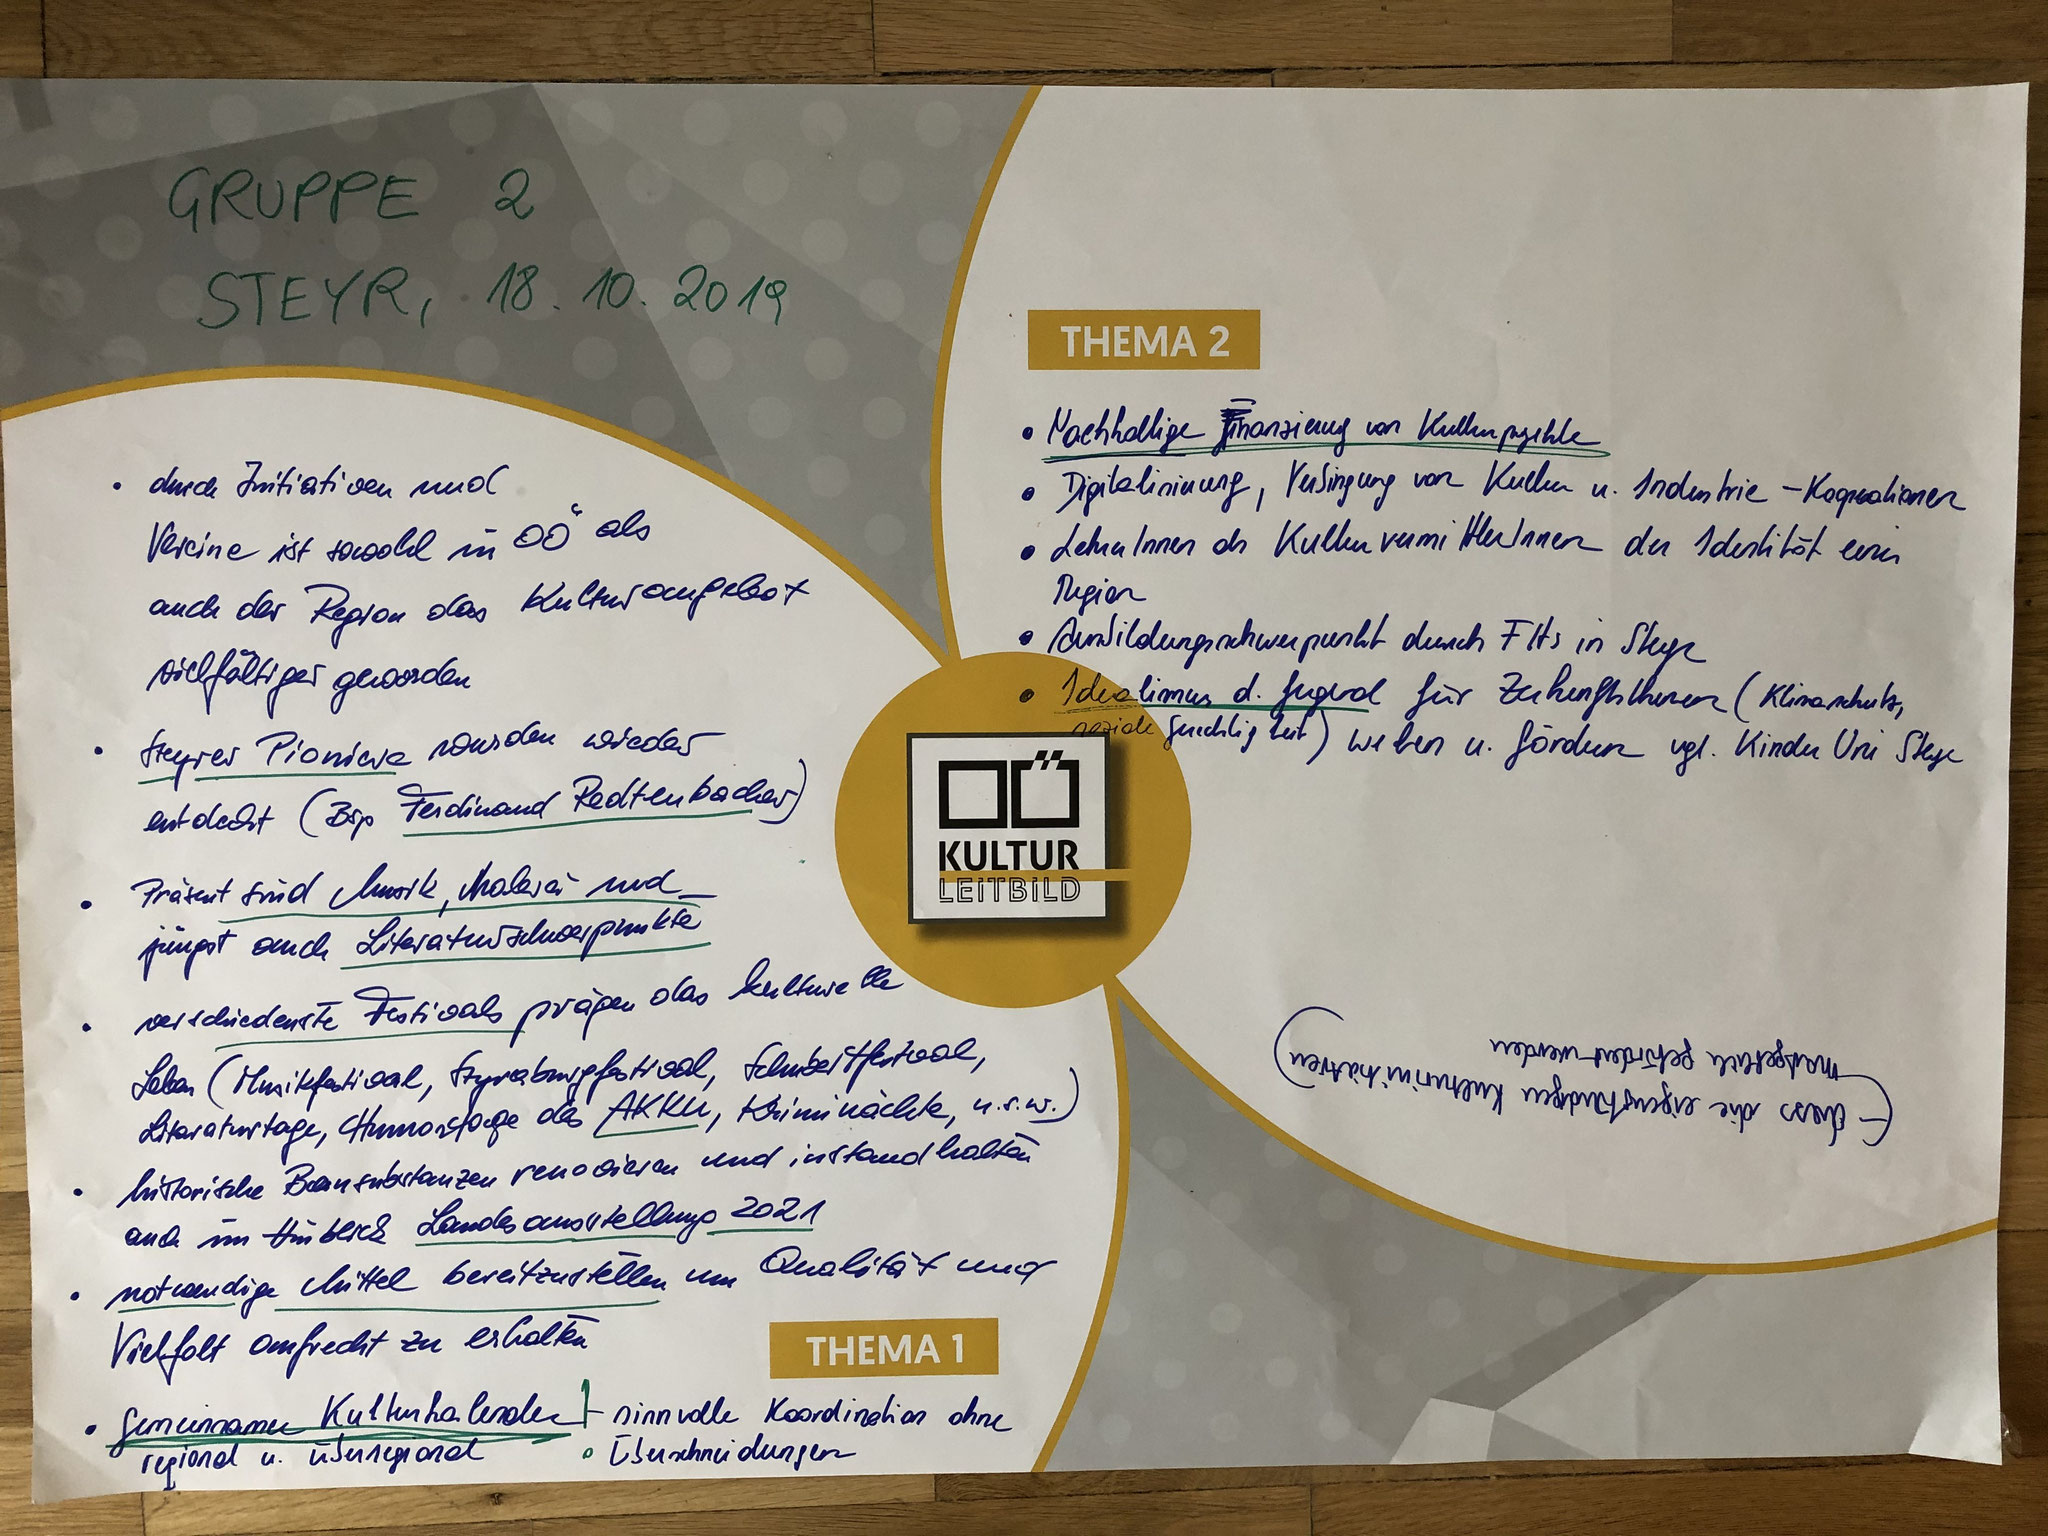 GRUPPE 2
STEYR, 18.10.2019
• durch Initiativen und
Vereine ist sowohl in OÖ als
auch der Region das Kulturangebot
vielfältiger geworden
• Steyrer Pioniere wurden wieder
entdeckt (Bsp Ferdinand Redtenbacher)
• Präsent sind Musik, Malerei und
jüngst auch Literaturschwerpunkte
• verschiedenste Festivals prägen das kulturelle
Leben (Musikfestival, Styraburgfestival, Schubertfestival,
Literaturtage, Humortage des AKKU, Kriminächte, u.s.w.)
• historische Bausubstanzen renovieren und instandhalten
auch im Hinblick Landesausstellung 2021
• notwendige Mittel bereitzustellen um Qualität und
Vielfalt aufrecht zu erhalten
THEMA 1
• gemeinsamer Kulturkalender - sinnvolle Koordination ohne
regional u. überregional • Überschneidungen
THEMA 2
• Nachhaltige Finanzierung von Kulturprojekte
• Digitalisierung, Verbingung von Kultur u. Industrie - Kooperationen
• LehrerInnen als KulturvermittlerInnen der Identität einer
Region
• Ausbildungsschwerpunkt durch FHs in Steyr
• Idealismus d. Jugend für Zukunftsthemen (Klimaschutz,
soziale Gerechtigkeit) wecken u. fördern vgl. Kinder Uni Steyr
OÖ
KULTUR
LEITBILD
(- dass die eigenständigen Kulturinitiativen)
maßgeblich gefördert werden